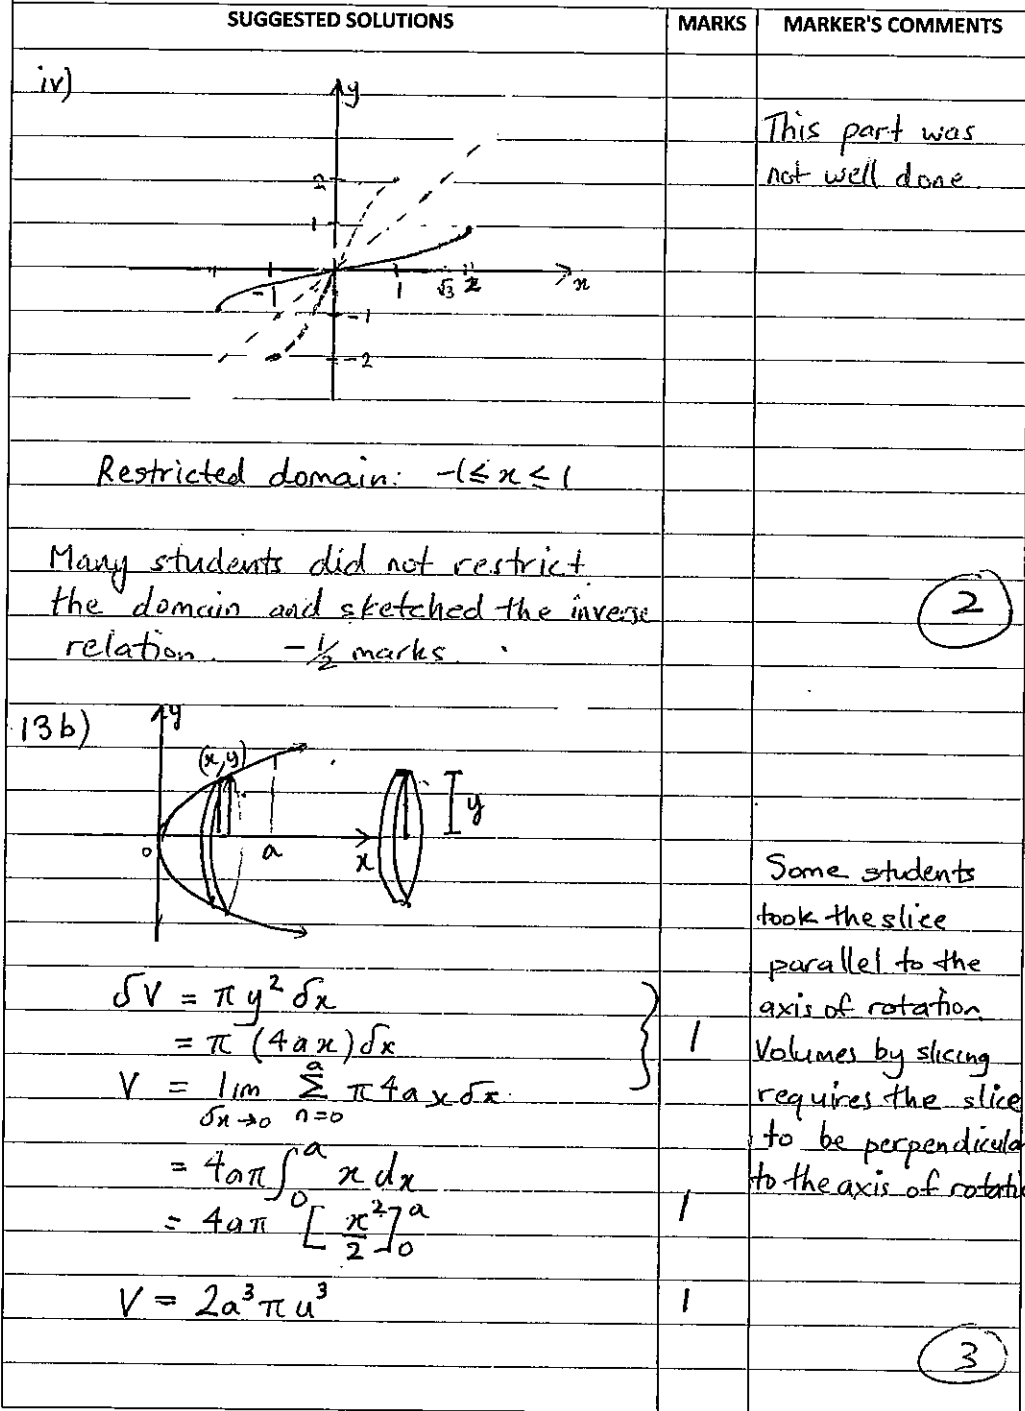 SUGGESTED SOLUTIONS MARKS MARKER'S COMMENTS
iv)
y
2
1
-1 1 √3 2 x
-1
-2
This part was
not well done.
Restricted domain: -1 ≤ x ≤ 1
Many students did not restrict
the domain and sketched the inverse
relation. -½ marks.
2
13b)
y
(x,y)
y
0 a x
Some students
took the slice
parallel to the
axis of rotation.
Volumes by slicing
requires the slice
to be perpendicula
to the axis of rotati
δV = π y² δx
= π (4ax) δx
1
V = lim δx→0 a Σ n=0 π 4 a x δx
= 4aπ ∫₀ᵃ x dx
= 4aπ [x²/2]₀ᵃ
1
V = 2a³ π u³
1
3